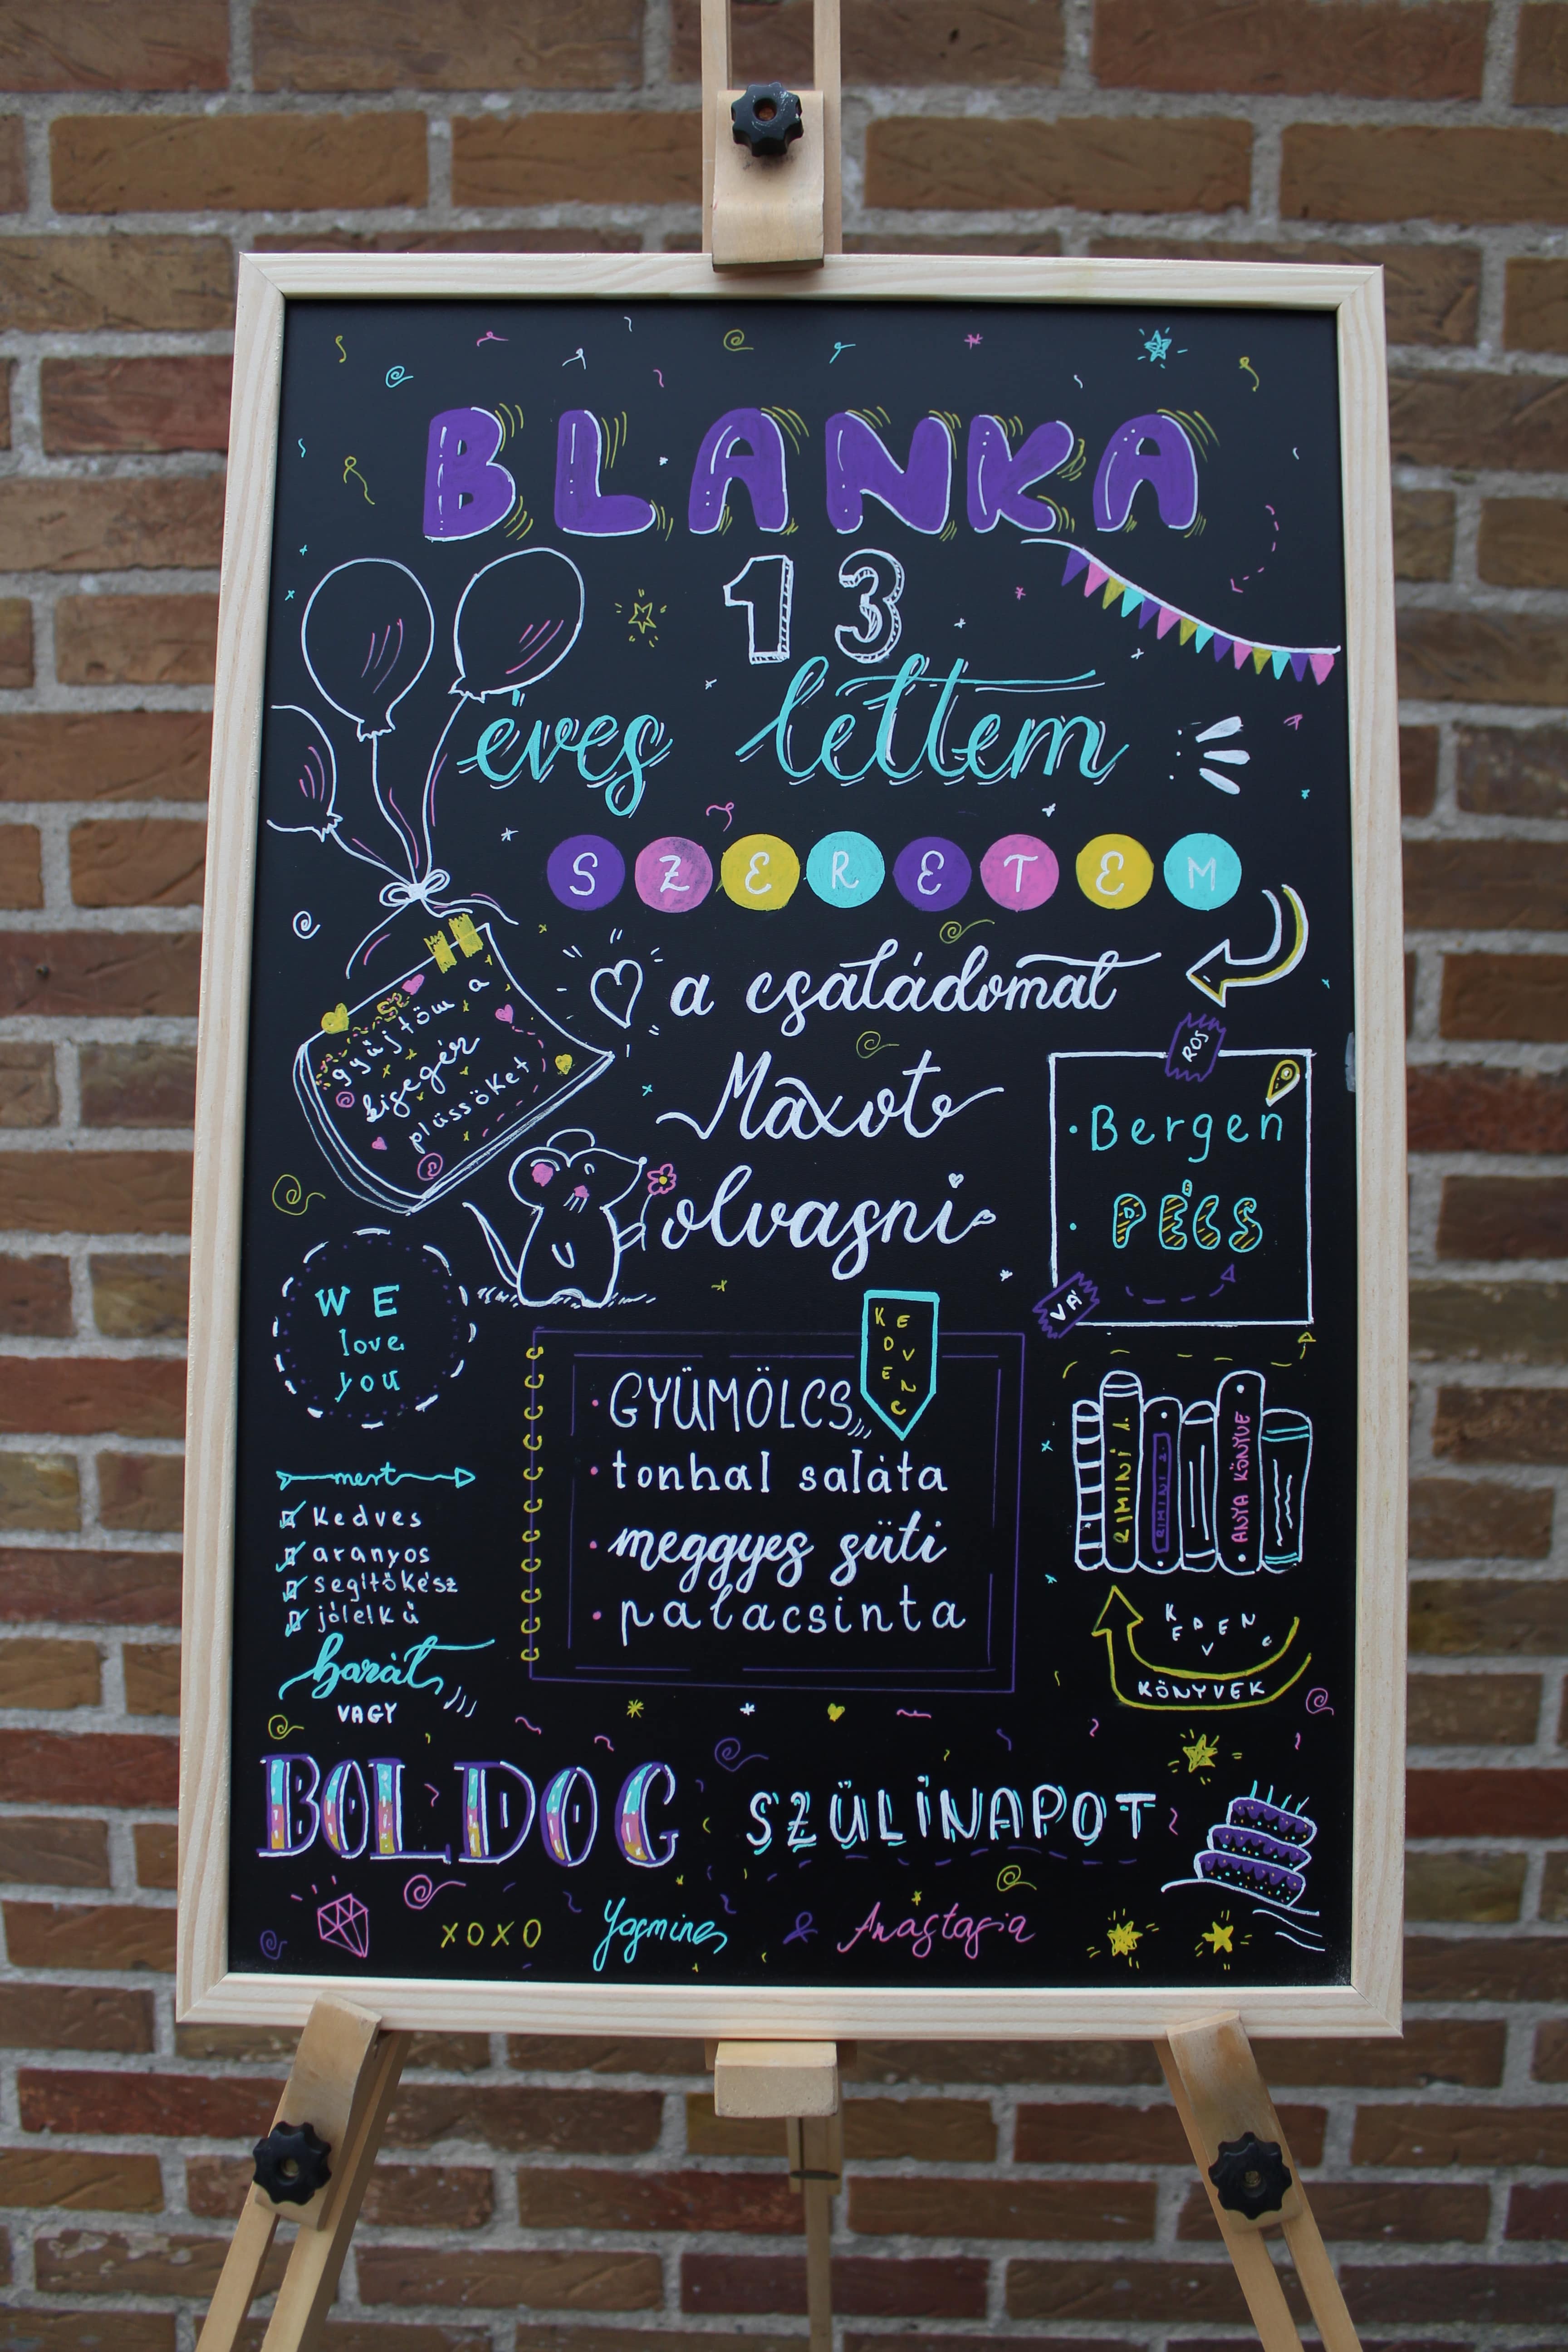 BLANKA
13
éves lettem
SZERETEM
a családomat
Maxot
olvasni
gyűjtöm a
kisegér
plüssöket
VÁ
ROS
Bergen
PÉCS
WE
love
you
KEDVENC
GYÜMÖLCS
tonhal saláta
meggyes süti
palacsinta
RIMINI 1.
RIMINI 2.
ANYA KÖNYVE
KEDVENC
KÖNYVEK
mert
kedves
aranyos
segítőkész
jólelkű
barát
VAGY
BOLDOG SZÜLINAPOT
XOXO Yasmine & Anastasia